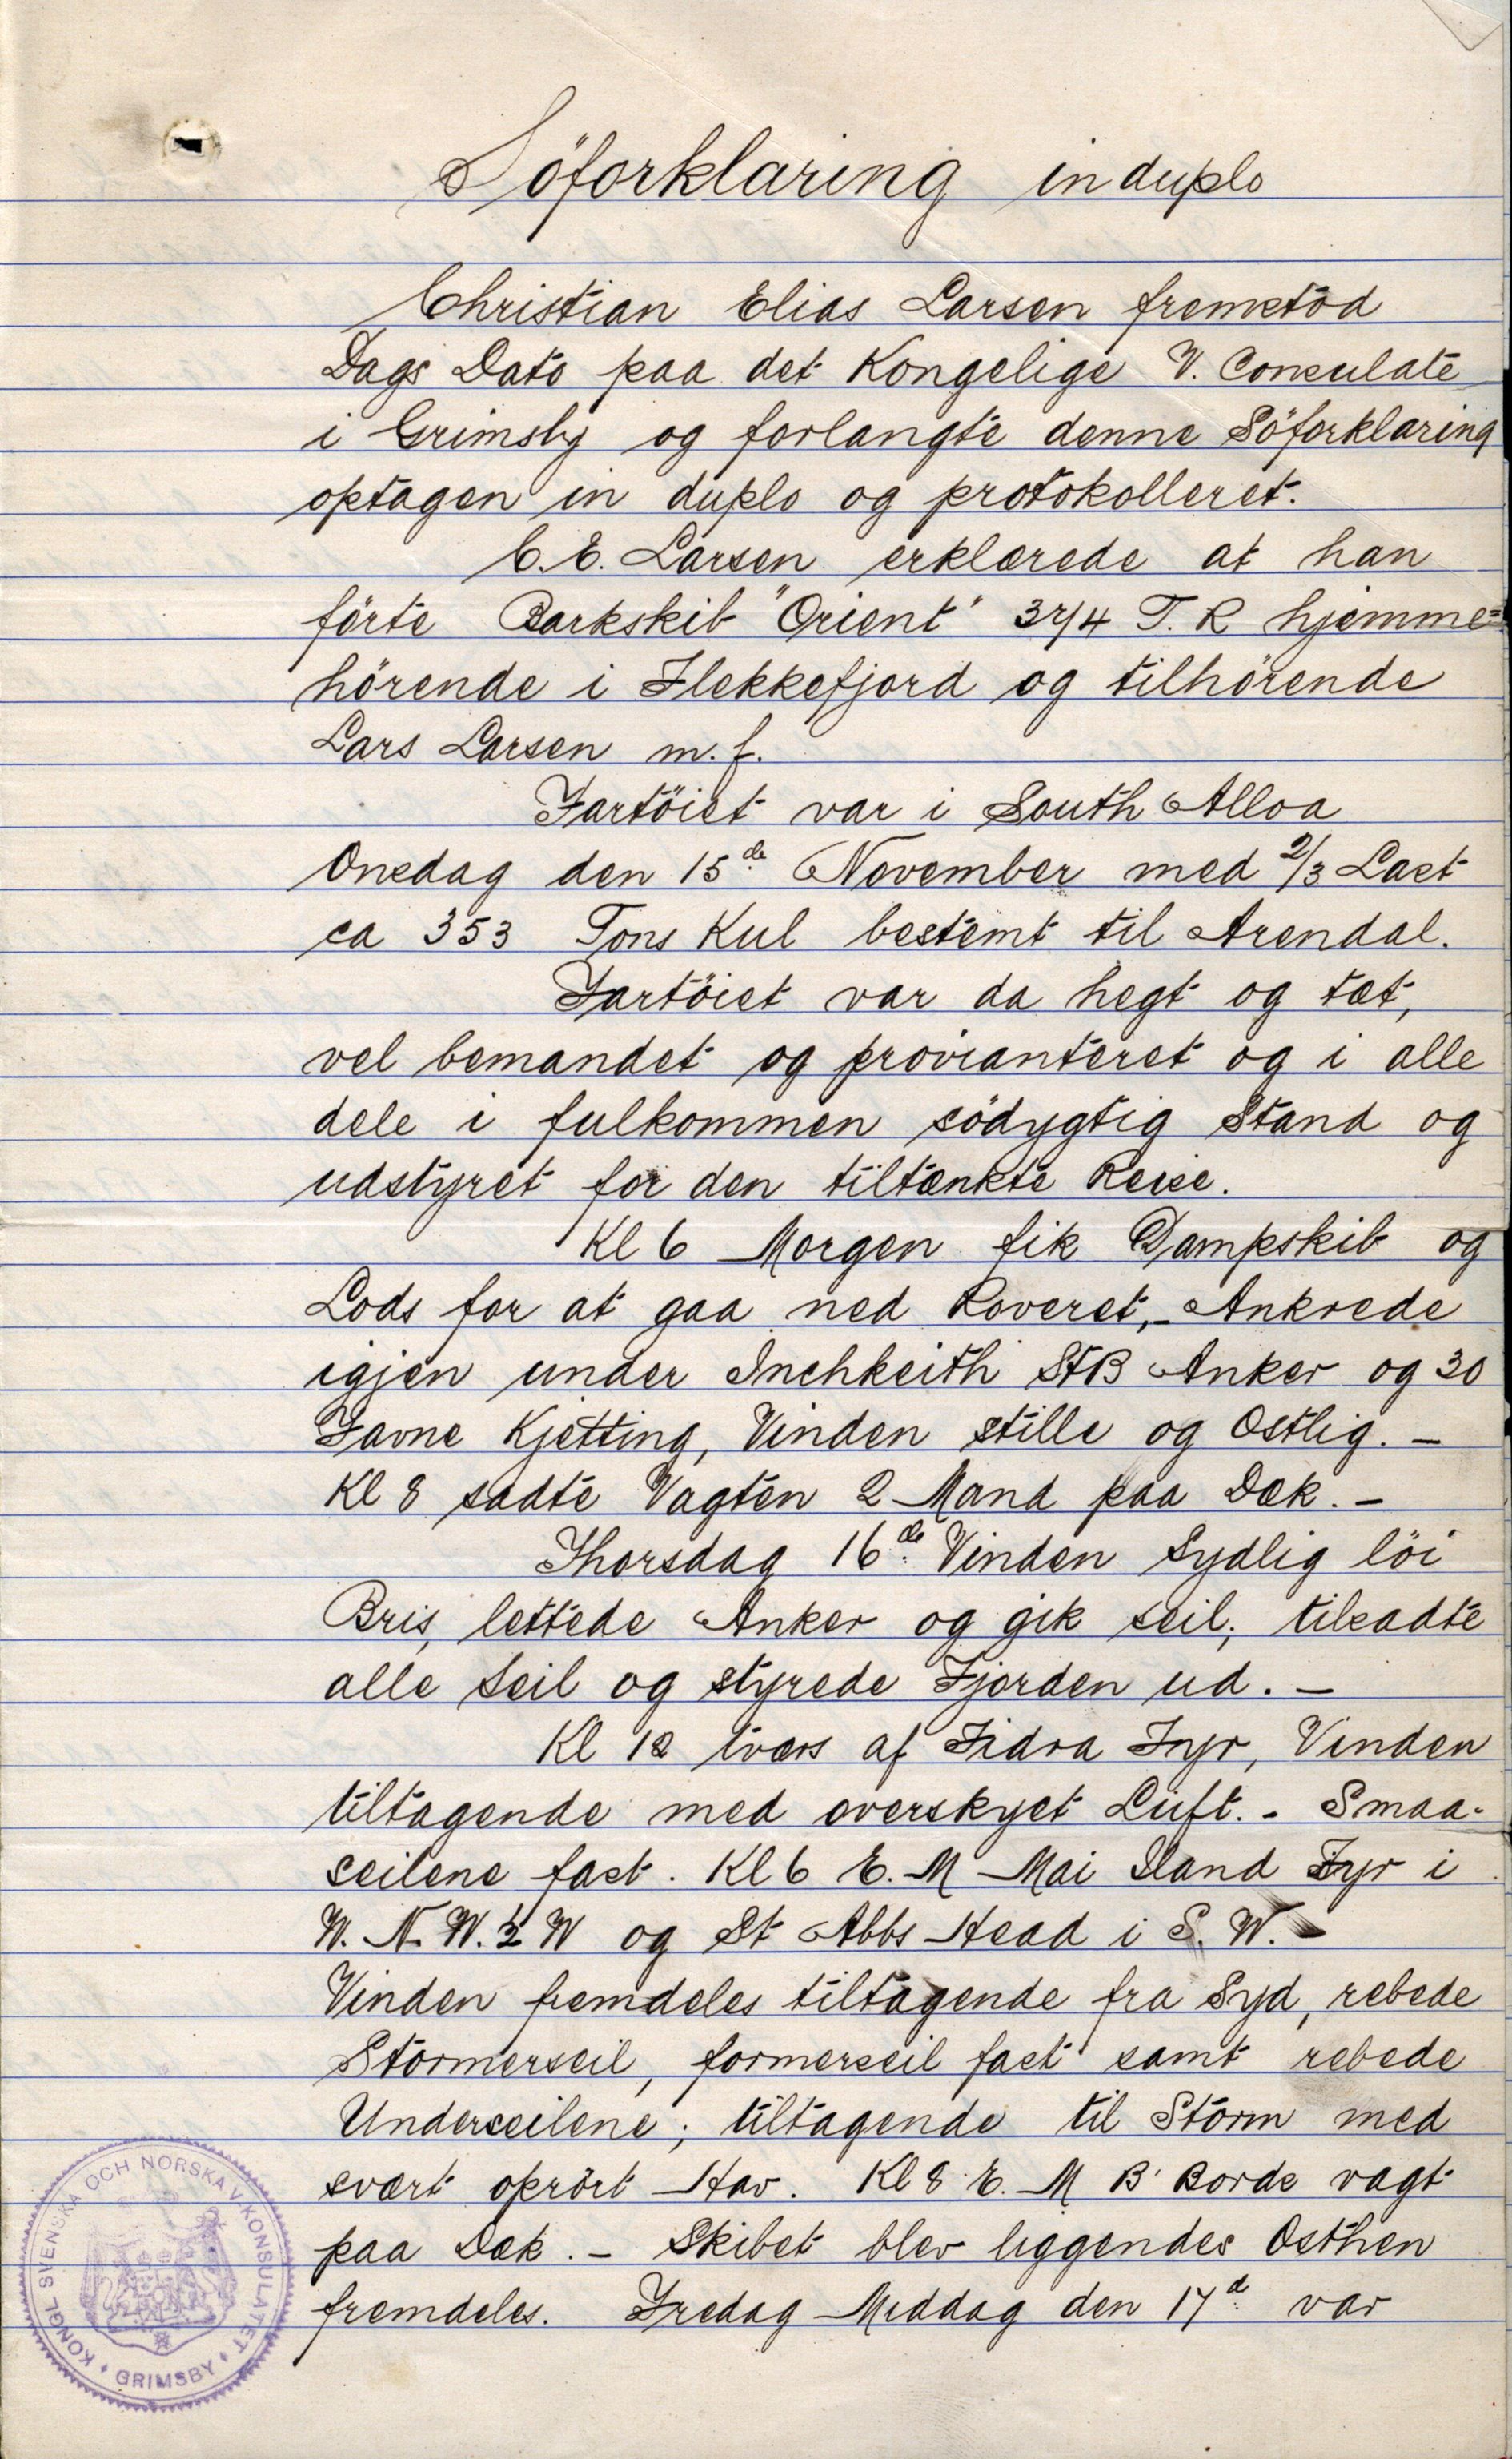 Söforklaring in duplo
Christian Elias Larsen fremstod
Dags Dato paa det Kongelige V. Consulate
i Grimsby og forlangte denne Söforklaring
optagen in duplo og protokolleret.
C. E. Larsen erklærede at han
förte Barkskib "Orient" 374 T. R hjemme=
hörende i Flekkefjord og tilhörende
Lars Larsen m. f.
Fartöiet var i South Alloa
Onsdag den 15de November med 2/3 Last
ca 353 Tons Kul bestemt til Arendal.
Fartöiet var da hegt og tæt,
vel bemandet og provianteret og i alle
dele i fulkommen södygtig Stand og
udstyret for den tiltænkte Reise.
Kl 6 Morgen fik Dampskib og
Lods for at gaa ned Roveret,- Ankrede
igjen under Inchkeith StB Anker og 30
Favne Kjetting, Vinden stille og Ostlig. -
Kl 8 sadte Vagten 2 Mand paa Dæk. -
Thorsdag 16de Vinden Sydlig löi
Bris, lettede Anker og gik seil, tilsadte
alle Seil og styrede Fjorden ud. -
Kl 12 tværs af Fidra Fyr, Vinden
tiltagende med overskyet Luft. - Smaa-
seilene fast. Kl 6 E. M Mai Iland Fyr i
W. N. W. ½ W og St Abbs Head i S. W. -
Vinden fremdeles tiltagende fra Syd, rebede
Stormerseil, formerseil fast samt rebede
Underseilene; tiltagende til Storm med
svært oprört Hav. Kl 8 E. M B' Bords vagt
paa Dæk. - Skibet blev liggendes Osthen
fremdeles. Fredag Middag den 17d var
KONGL SVENSKA OCH NORSKA V. KONSULATET
GRIMSBY